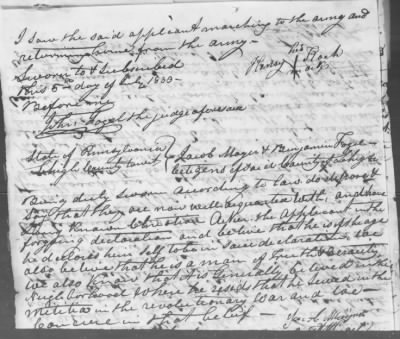 I saw the said applicant marching to the army and
returning home from the army —
Sworn to & Subscribed
this 5th day of July 1833 —
Henry his X mark
Before me
John Fogel the judge aforesaid
State of Pennsylvania
County } Jacob Mayer & Benjamin Fogel
Citizens of said County
Being duly sworn according to law do depose &
Say that they are now well acquainted with, and have
long known Christian the Applicant in the
forgoing declaration and believe that he is of the age
he declares himself to be in said declaration, we
also believe that he is a man of truth & veracity
We also know that it is Generally believed in the
Neighborhood where he resides that he served in the
Militia in the revolutionary war and we
Concur in that belief —
Jacob Mayer